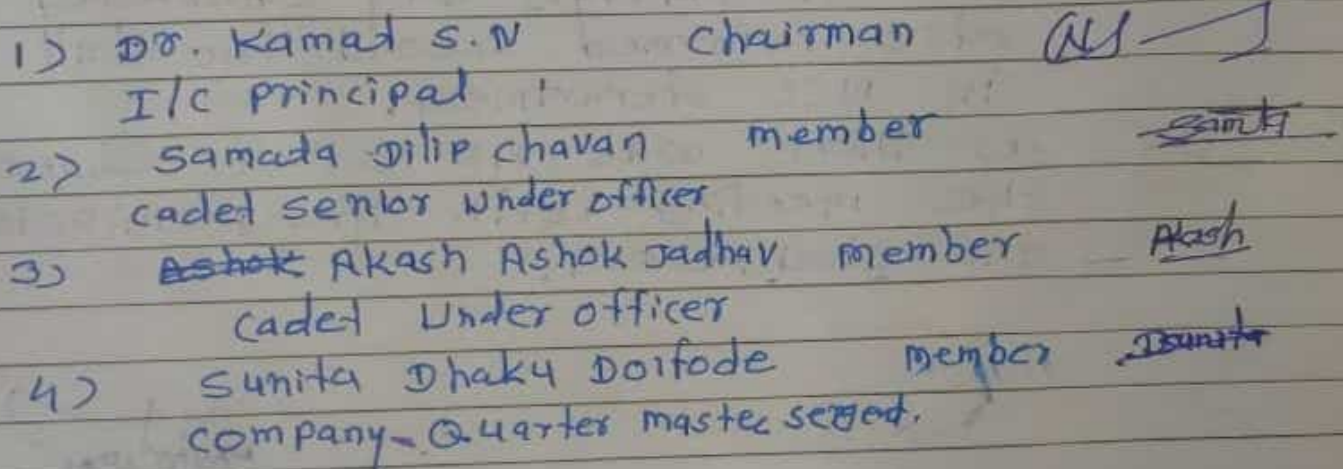 1) Dr. Kamat S.N Chairman
I/C principal
2) Samada Dilip chavan member
cadet senior Under officer
3) Ashok Akash Ashok Jadhav member Akash
Cadet Under officer
4) Sunita Dhaku Doifode member Sunita
company-Quarter master